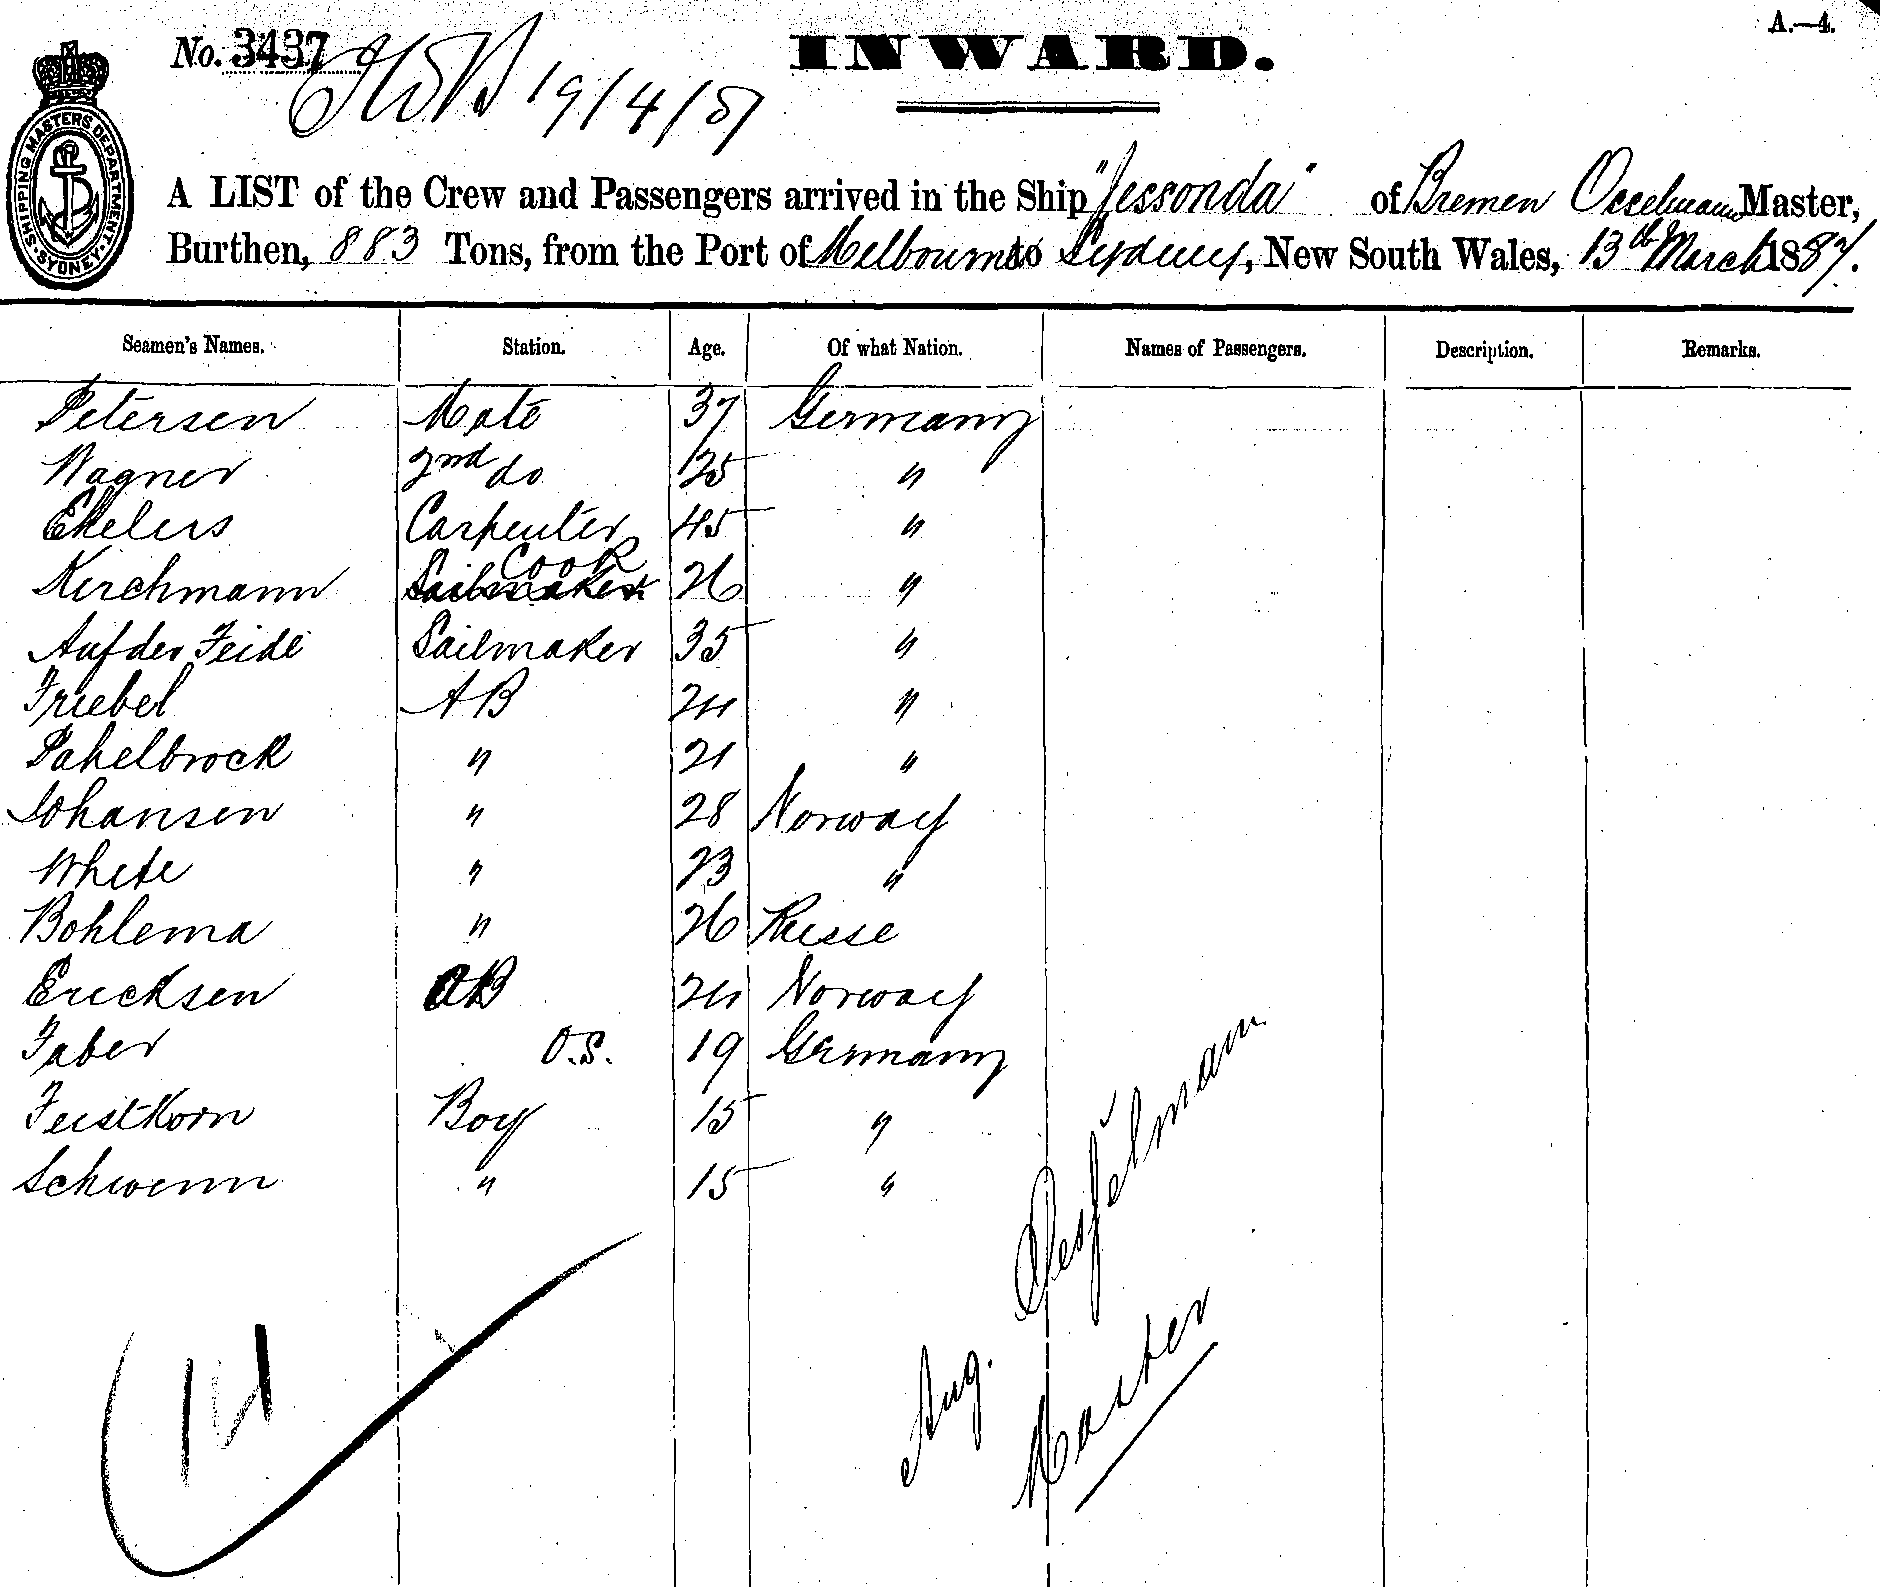 A.—4.
No. 3437
INWARD.
19/4/87
SHIPPING MASTERS DEPARTMENT. SYDNEY.
A LIST of the Crew and Passengers arrived in the Ship "Jessonda" of Bremen Osselmann Master,
Burthen, 883 Tons, from the Port of Melbourne to Sydney, New South Wales, 13th March 1887.
Seamen's Names. Station. Age. Of what Nation. Names of Passengers. Description. Remarks.
Petersen Mate 37 Germany
Wagner 2nd do 25 "
Ekelers Carpenter 45 "
Kirchmann Sailmaker Cook 26 "
Auf der Feide Sailmaker 35 "
Friebel AB 24 "
Pahelbrock " 21 "
Johansen " 28 Norway
White " 23 "
Bohlema " 26 Russe
Ericksen AB 24 Norway
Faber O.S. 19 Germany
Feistkorn Boy 15 "
Schwenn " 15 "
14
Aug. Oesselmann
Master